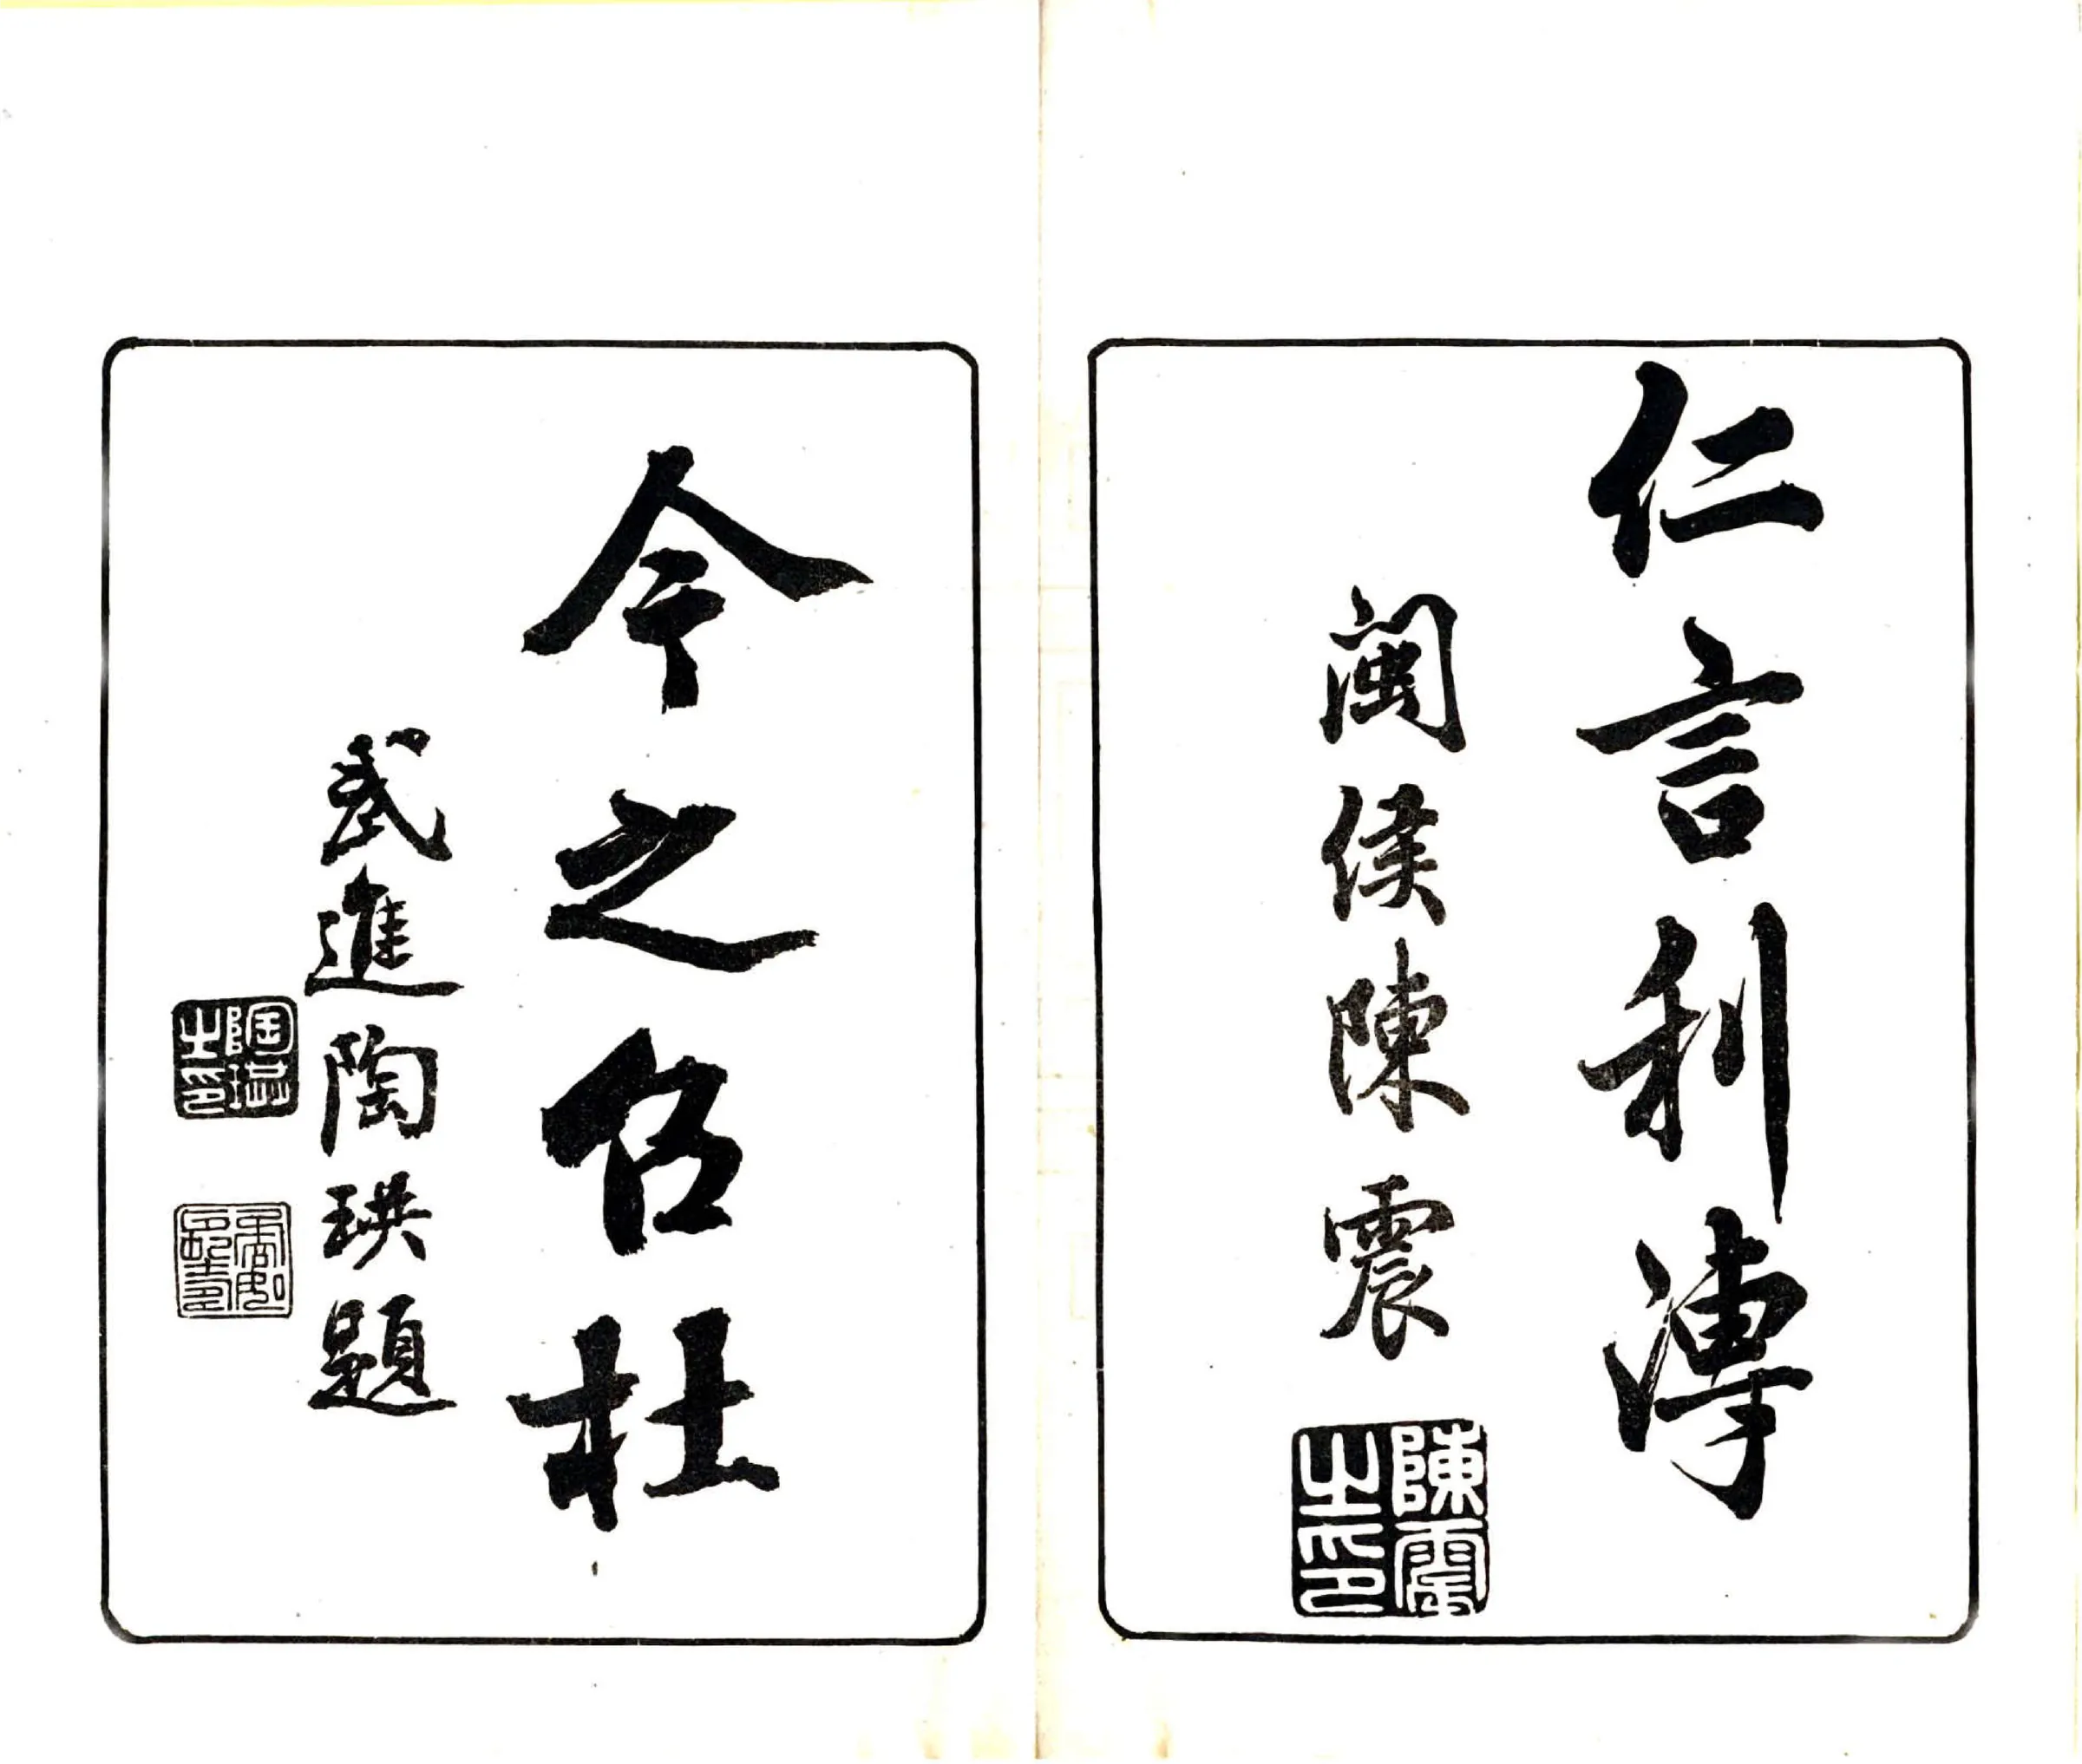 仁言利溥
閩侯陳震
陳震之印
今之召杜
武進陶珙題
陶珙之印